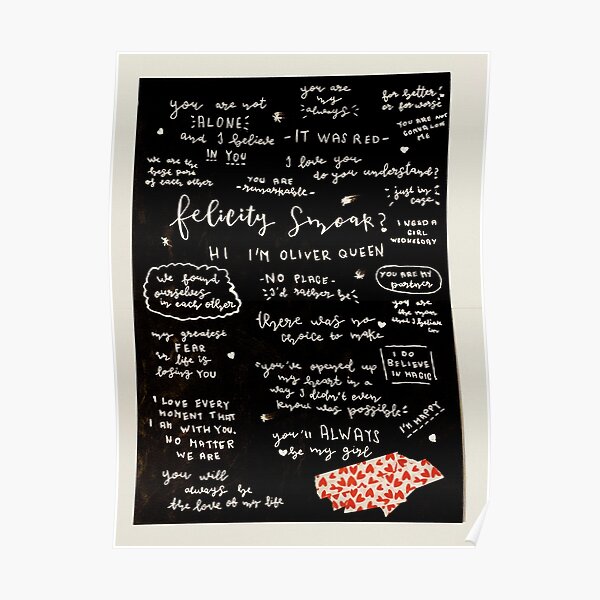 you are not
ALONE
and I believe
IN YOU
you are
my
always
for better
or for worse
-IT WAS RED-
YOU ARE NOT
GONNA LOSE
ME
we are the
best part
of each other
I love you
do you understand?
YOU ARE
-remarkable-
just in
case
felicity Smoak?
HI I'M OLIVER QUEEN
I NEED A
GIRL
WEDNESDAY
we found
ourselves
in each other
-NO PLACE-
I'd rather be
YOU ARE MY
partner
you are
the man
that I believe
in
there was no
choice to make
my greatest
FEAR
in life is
losing YOU
I DO
BELIEVE
IN MAGIC
you've opened up
my heart in a
way I didn't even
know was possible
I LOVE EVERY
MOMENT THAT
I AM WITH YOU.
NO MATTER
WE ARE
I'M HAPPY
you'll ALWAYS
be my girl
you will
always be
the love of my life